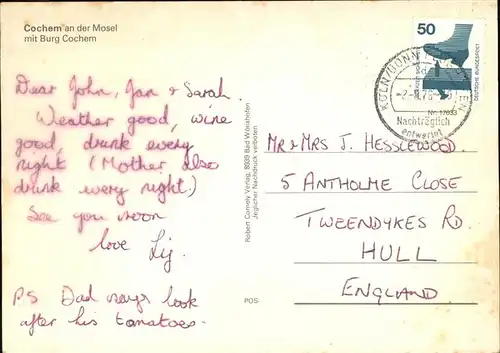 Cochem an der Mosel
mit Burg Cochem
Dear John, Jan & Sarah.
Weather good, wine
good, drunk every
night (Mother also
drunk every night.)
See you soon
love Liz.
PS Dad says look
after his tomatoes.
Robert Comely Verlag, 8939 Bad Wörishofen
Jeglicher Nachdruck verboten
POS
50
DEUTSCHE BUNDESPOST
KÖLN/BONN
Nachträglich
entwertet
MR & MRS J. HESSLEWOOD.
5 ANTHOLME CLOSE
TWEENDYKES RD.
HULL
ENGLAND